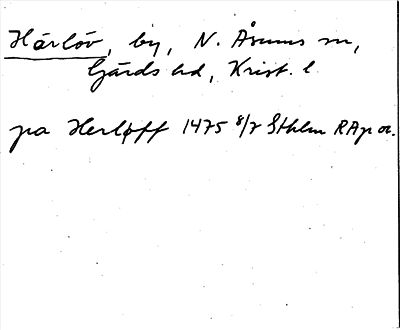 Härlöv, by, N. Åsums sn,
Gärds hd, Krist. l
pa Herløff 1475 8/7 Sthlm RAp or.